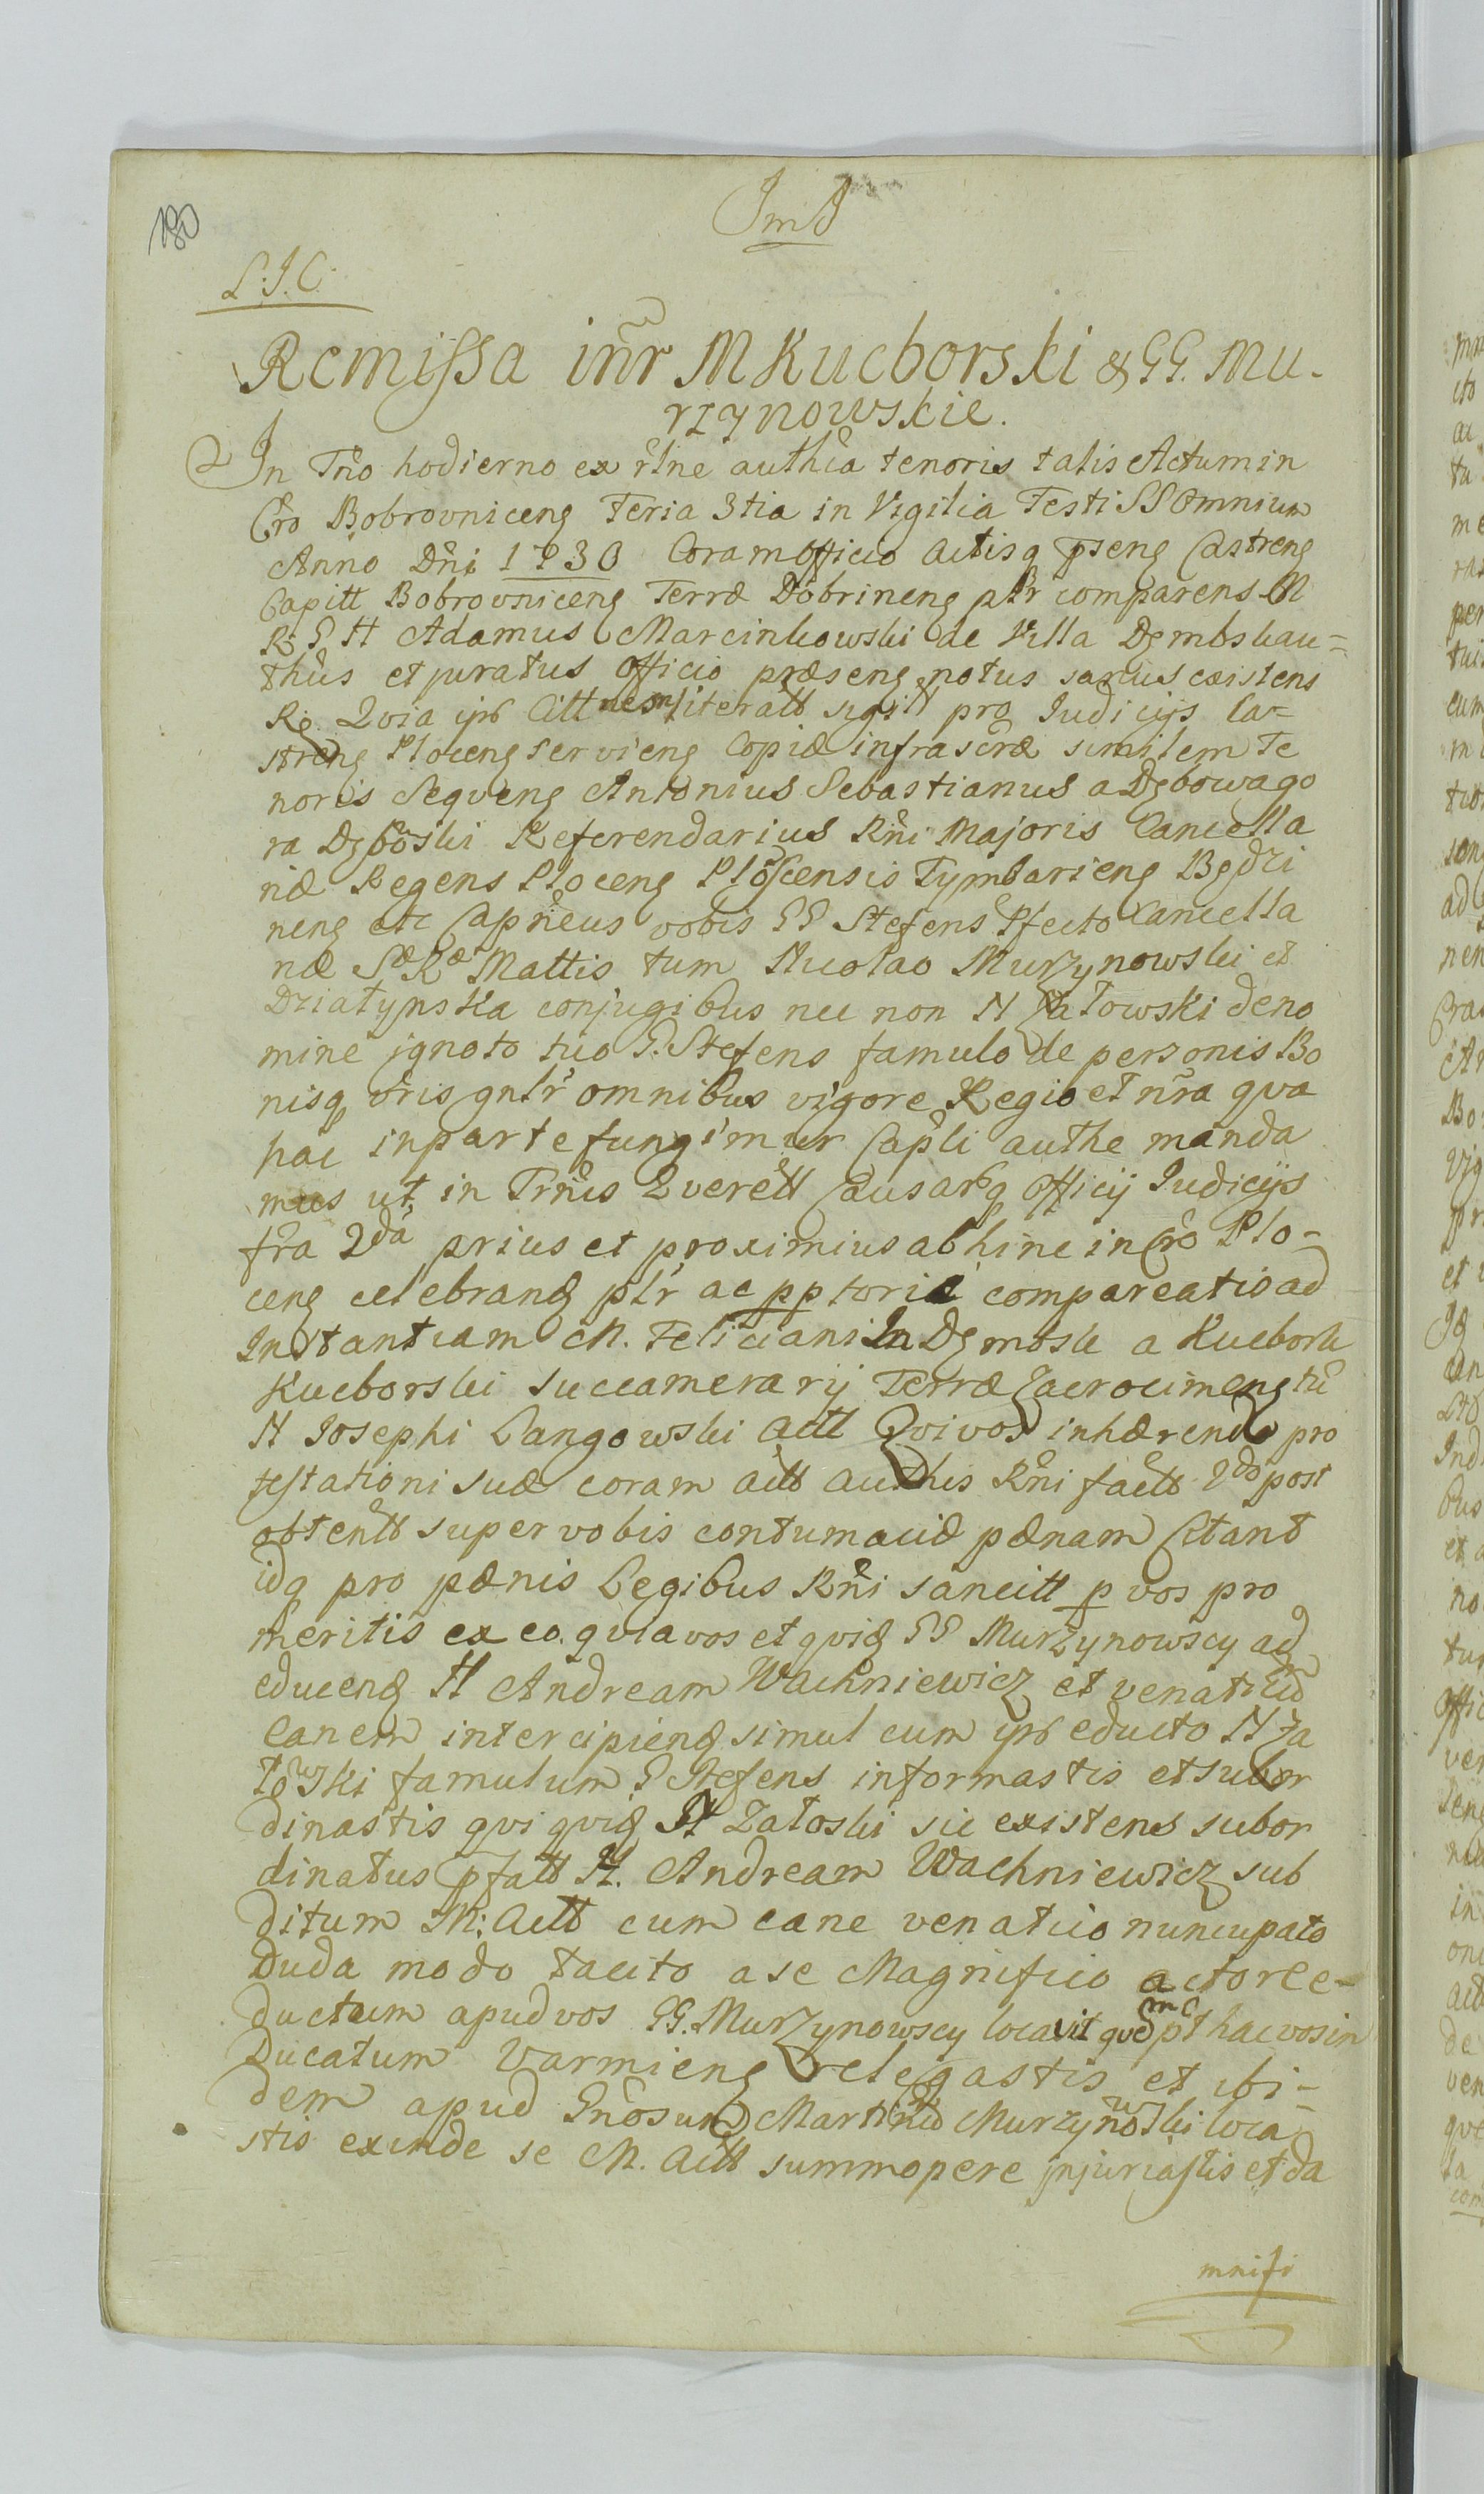 180
JmJ
L: J. C.
Remissa inr̃ M Kucborski & GG. Mu-
rzynowskie.
In Trño hodierno ex rlne authĩa tenoris talis Actum in
Cro Bobrovniceng Feria 3tia in Vigilia Festi SS Omnium
Anno Dñi 1730 Coram Officio Actisq pseng Castreng
Capitt Bobrovniceng Terræ Dobrineng pltr comparens M
R P H Adamus Marcinkowski de Villa Dembsk au=
thus et juratus Officio præseng notus sanus existens
R. Qvia ips Citt nem literalt sigill pro Judicijs Ca=
streng Ploceng servieng Copiæ infrascræ similem Te
noris Seqveng Antonius Sebastianus a Dębowago
ra Dęboski Referendarius Rñi Majoris Cancella
riæ Regens Ploceng Ploscensis Tymbarieng Będzi
neng etc Capneus vobis GG Stefens Pfecto Cancella
riæ SæRæ Mattis tum Nicolao Murzynowski et
Dziatynska conjugibus nec non N Załowski de no
mine ignoto tuo G. Stefens famulo de personis Bo
nisq vris gnlr omnibus vigore Regio et nra qva
hac in parte fungimur Capli authe manda
mus ut in Trnis Qverell Causarq Officij Judicijs
fra 2da prius et proximius abhinc in Cro Plo-
ceng celebrand pltr ac pptorie compareatis ad
Instantiam M. Feliciani In Dembsk a Kucbork
Kucborski Succamerarij Terræ Zacrocimeng tũ
N Josephi Langowski Actt Qvi vos inhærendo pro
testationi suæ coram actt authis Rñi factt 2do post
obtentt super vobis contumaciæ pænam Citant
idq pro pænis Legibus Rñi sancitt p vos pro
meritis ex eo. qvia vos et qvid GG Murzynowscy ad
educend H Andream Wachniewicz et venaticũ
Canem intercipiend simul cum ips educto N Za
łowski famulum G Stefens informastis et subor
dinastis qvi qvid N Załoski sic existens subor
dinatus pfatt H. Andream Wachniewicz sub
ditum M: Actt cum cane venatico nuncupato
Duda modo tacito a se Magnifico actore e=
ductum apud vos GG. Murzynowscy locavit qvem pt hac vos in
Ducatum Varmieng relegastis et ibi=
dem apud Gnosum Martinũ Murzynowski loca
stis exinde se M. Actt summopere injuriastis et da
mnifi